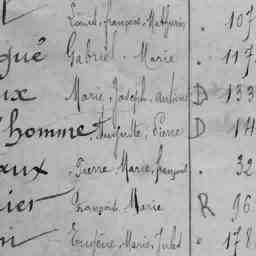 Louis, françois, Mathurin . 107
gué Gabriel . Marie . 117
ux Marie, Joseph, antoine D 133
homme, Auguste, Pierre D 14
aux . Pierre, Marie, françois . 32
ier François Marie R 96
ni Eugène, Marie, Jules . 178